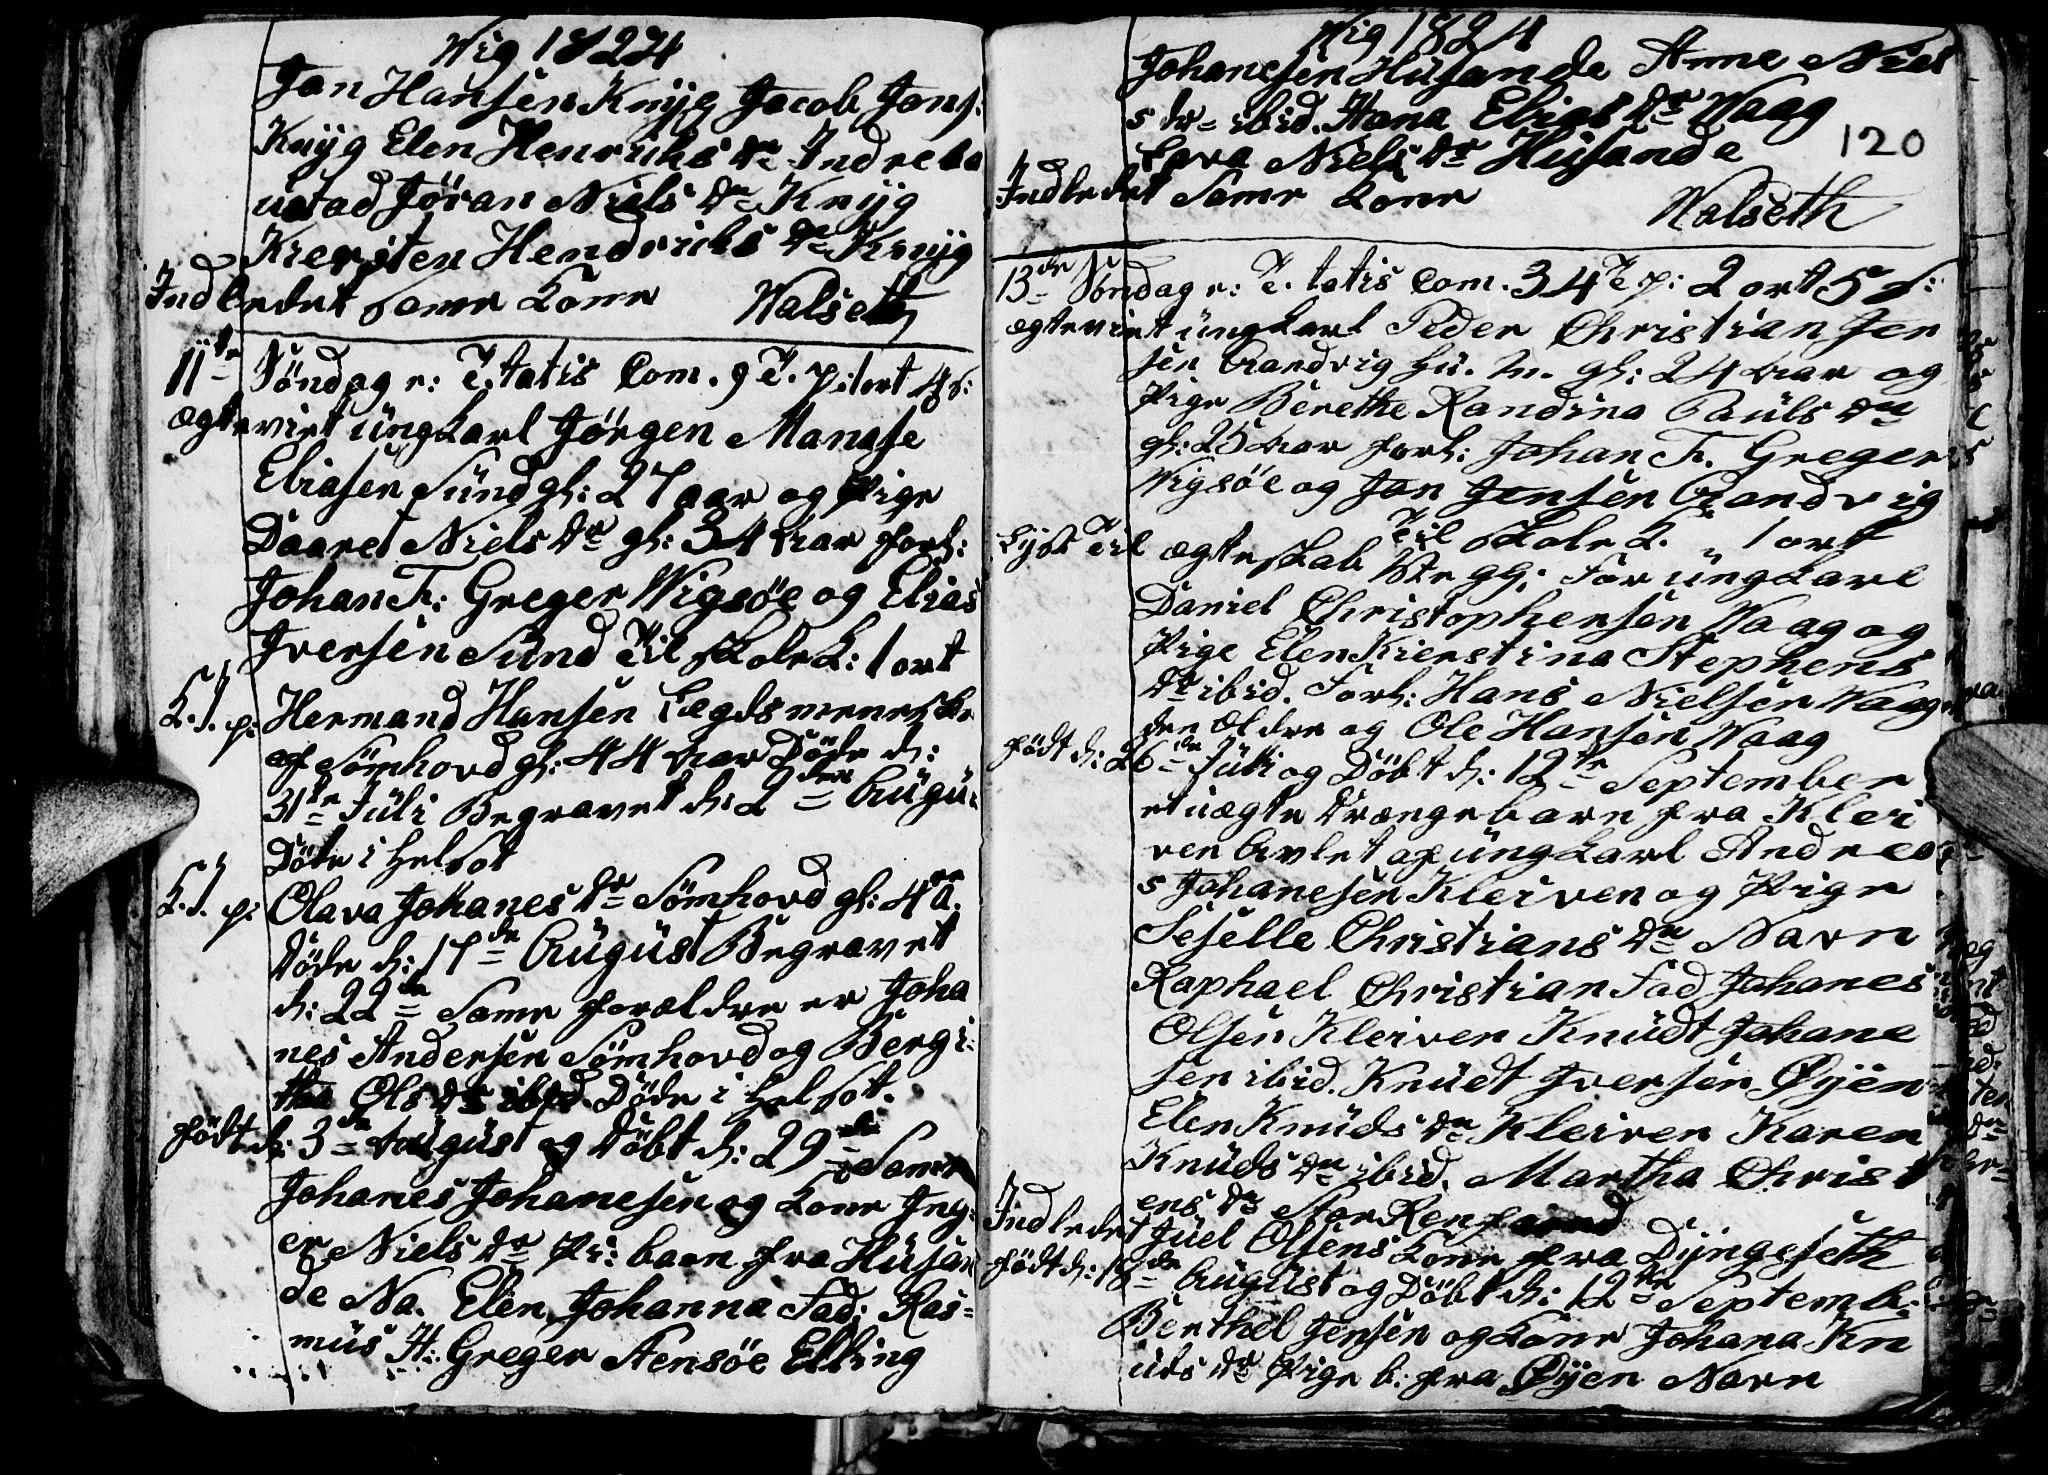 Wig 1824
Jon Hansen Knÿg Jacob Jons:
Knÿg Elen Henrichs dr Indreba
ustad Jöran Niels dr Knÿg
Kiersten Hendrichs dr Knÿg
Indledet Same Kone Walseth
11te Söndag e: T.tatis Com. 9 T. p: 1 ort 4 s:
ægteviet üngkarl Jörgen Manase
Eliasen Sünd gl: 27 aar og Pige
Daaret Niels dr gl: 34 aar forl:
Johan Fr: Greger Wigsöe og Elias
Iversen Sünd Til Skole K: 1 ort
K. J. p: Hermand Hansen Lægdsmenneske
af Sömhovd gl: 44 aar Döde d:
31te Jüli Begravet d: 2den Aügü:
Döde i Helsot
K. J. p: Olava Johanes dr Sömhovd gl: 4 a.
Döde d: 17de Aügüst Begravet
d: 22de Same forældre er Joha
nes Andersen Sömhovd og Bergi:
tha Ols dr ibid. Döde i Helsot.
födt d: 3de Aügüst og Döbt d: 29de Same
Johanes Johanesen og Kone Ing:
er Niels dr Pi: barn fra Hüsan
de Na. Elen Johanna Fad: Ras=
müs H: Greger Stensöe Elling
Wig 1824
Johanesen Hüsande Anne Niels
s dr ibid. Hana Elias dr Waag
Lava Niels dr Hüsande
120
Indledet Same Kone Walseth
13de Söndag e: T. tatis Com. 34 T p: 2 ort 5 s:
ægteviet üngkarl Peder Christian Jen
sen Aandvig Hü. m. gl: 24 aar og
Pige Berethe Randina Paüls dr
gl: 25 aar forl: Johan Fr. Greger
Wigsöe og Jon Jensen Aandvig
Til Skole K. 1 ort
Lÿst Til ægteskab 1ste g: For üngkarl
Daniel Christophersen Waag og
Pige Elen Kierstina Stephens
dr ibid. Forl: Hans Nielsen Waag
den Oldre og Ole Hansen Waag
födt d: 26de Jüli og Döbt d: 12te September
et üægte Drængebarn fra Klei
ven Avlet af üngkarl Andrea
s Johanesen Kleiven og Pige
Seselle Christians dr Navn
Raphael Christian Fad Johanes
Olsen Kleiven Knüdt Johane
sen ibid. Knüdt Iversen Øÿen
Elen Knüds dr Kleiven Karen
Knüds dr ibid. Martha Christ
ens dr
Indledet Jüel Olsens Kone fra Dÿngeseth
födt d: 18de Aügüst og Döbt d: 12te Septemb:
Berthel Jensen og Kone Johana Kn
üds dr Pige b: fra Øÿen Navn